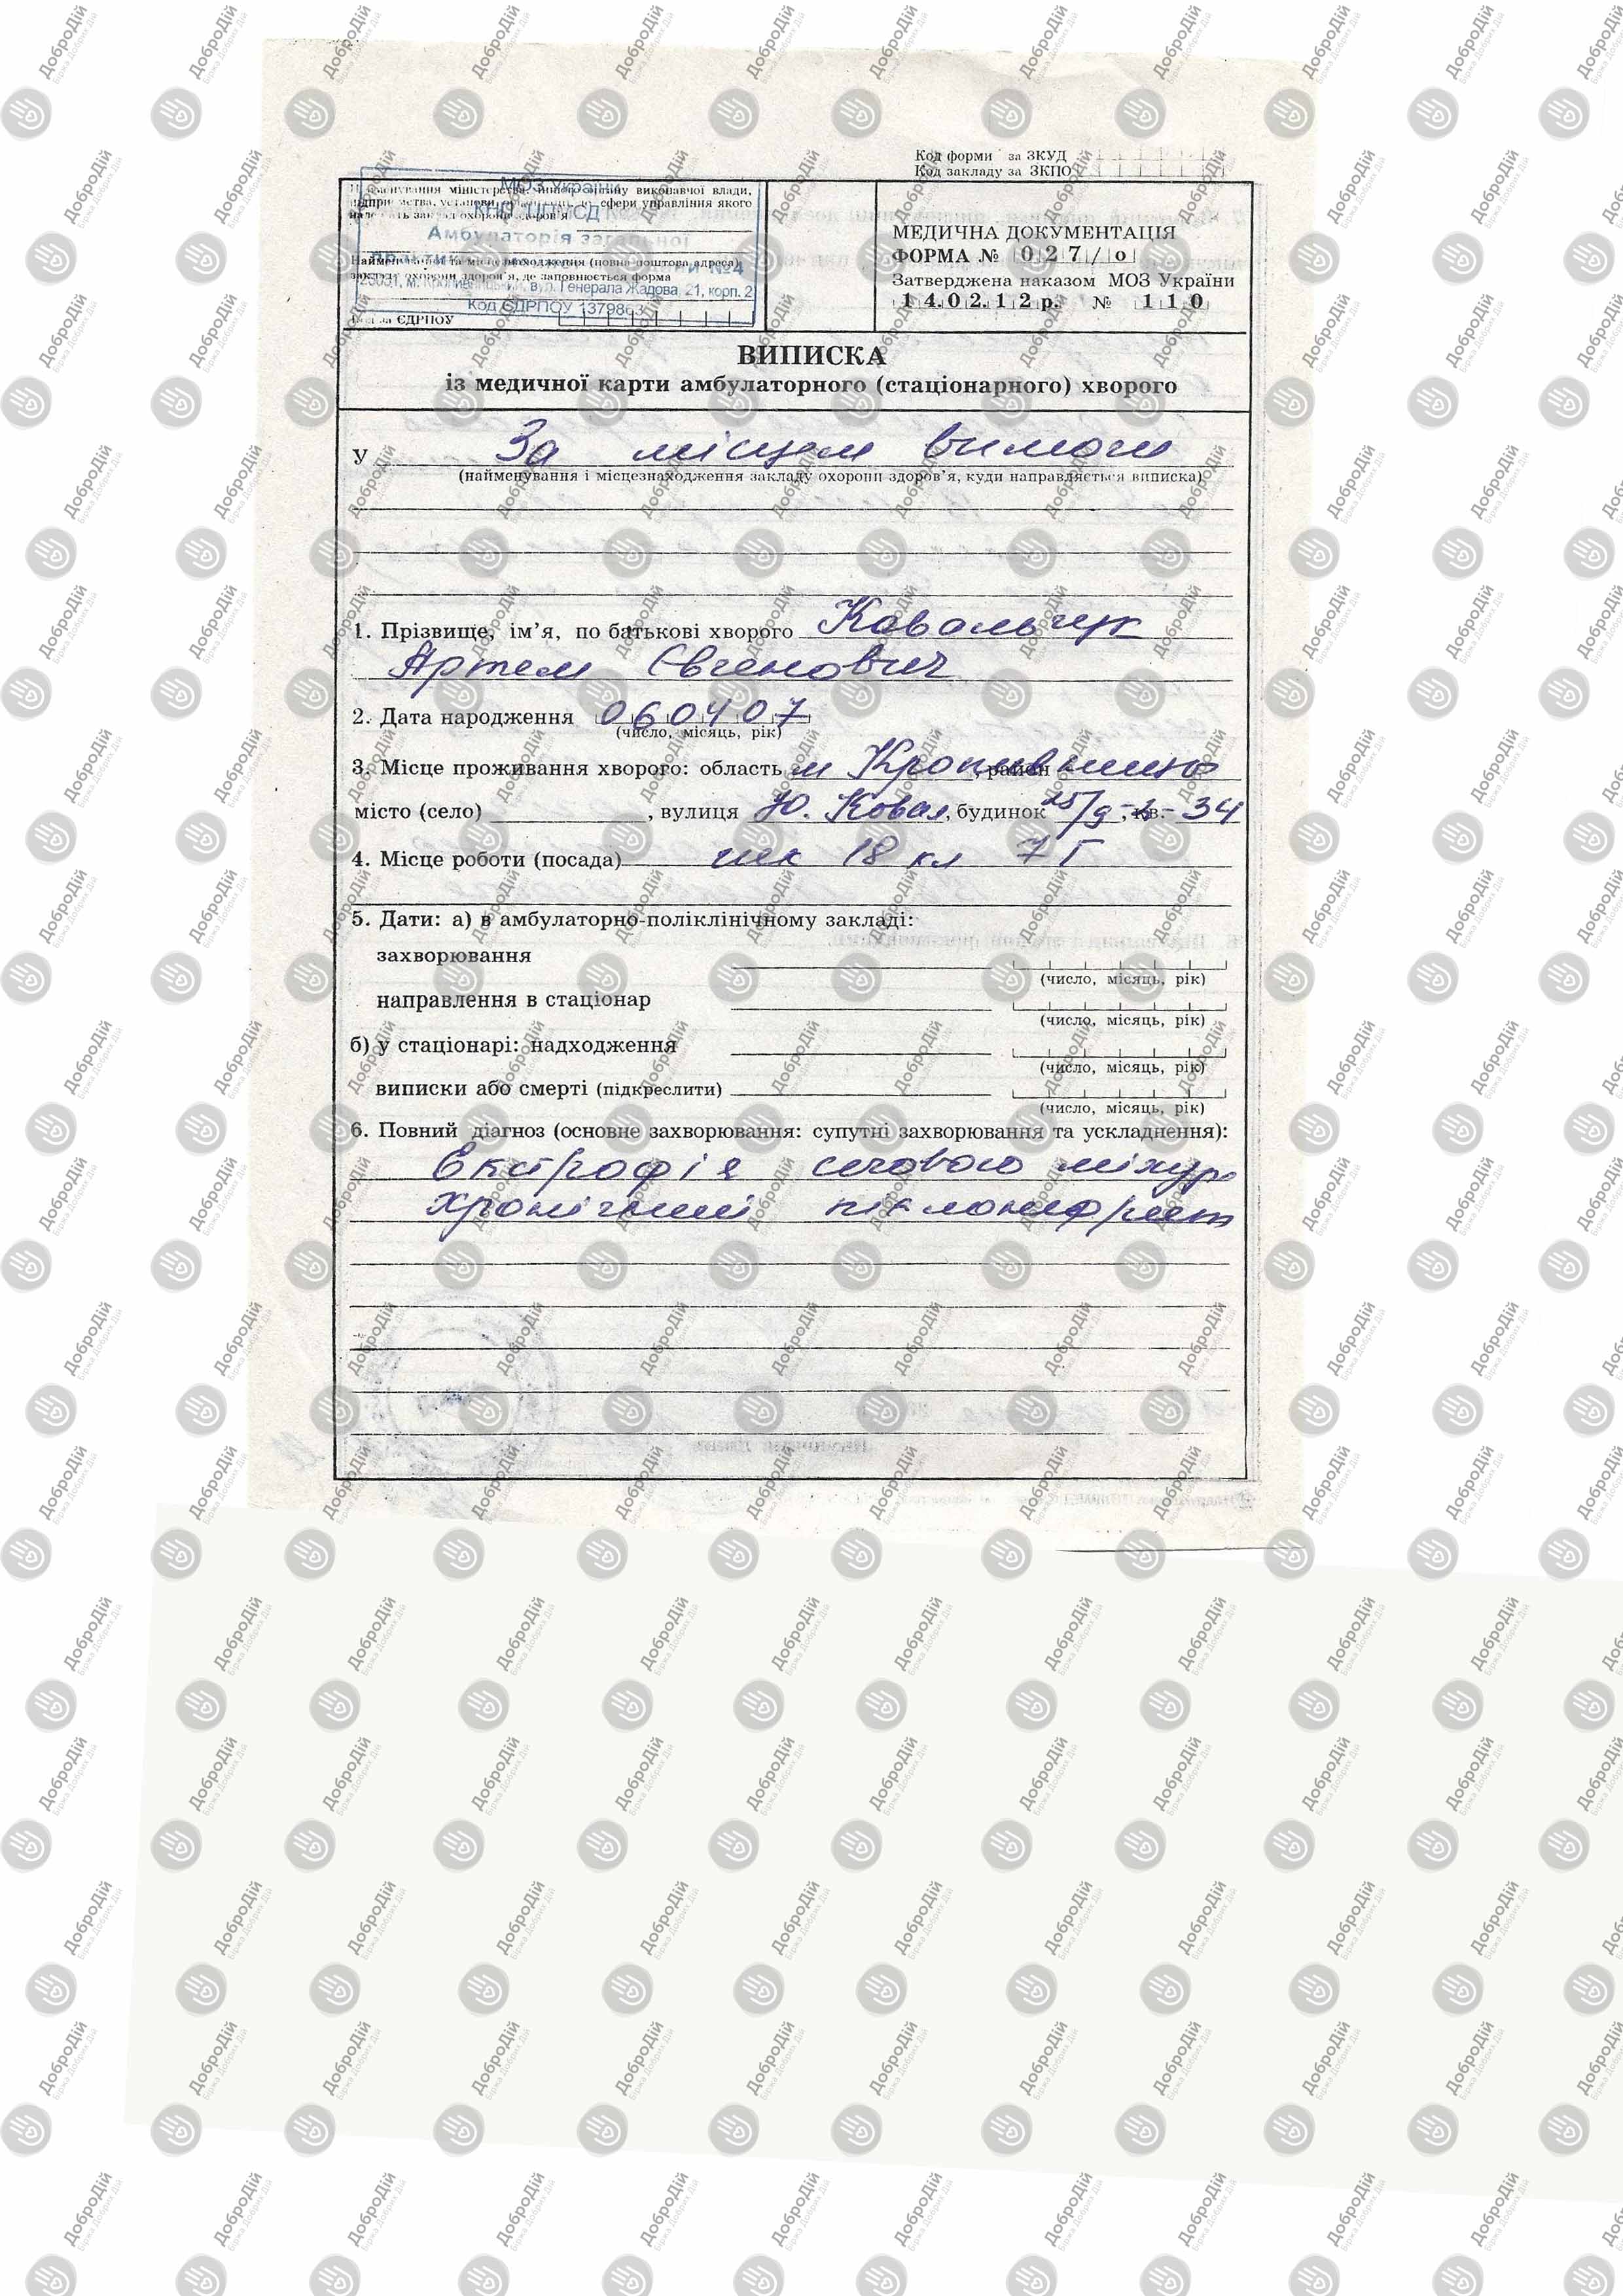 Код форми за ЗКУД
Код закладу за ЗКПО
МОЗ України
КНП "ЦПМСД
Амбулаторія загальної
№4
25031, м. Кропивницький, вул. Генерала Жадова, 21, корп. 2
Код ЄДРПОУ
Найменування міністерства, іншого органу виконавчої влади,
підприємства, установи, сфери управління якого
належить заклад охорони здоров'я
Найменування та місцезнаходження (повна поштова адреса)
закладу охорони здоров'я, де заповнюється форма
Код за ЄДРПОУ
МЕДИЧНА ДОКУМЕНТАЦІЯ
ФОРМА № 027/о
Затверджена наказом МОЗ України
14.02.12р. № 110
ВИПИСКА
із медичної карти амбулаторного (стаціонарного) хворого
У За місцем вимоги
(найменування і місцезнаходження закладу охорони здоров'я, куди направляється виписка)
1. Прізвище, ім'я, по батькові хворого Ковальчук
Артем Євгенович
2. Дата народження 060407
(число, місяць, рік)
3. Місце проживання хворого: область м Кропивницький район
місто (село) , вулиця Ю. Коваля, будинок , кв. 34
4. Місце роботи (посада) шк 18 кл 7 Г
5. Дати: а) в амбулаторно-поліклінічному закладі:
захворювання
(число, місяць, рік)
направлення в стаціонар
(число, місяць, рік)
б) у стаціонарі: надходження
(число, місяць, рік)
виписки або смерті (підкреслити)
(число, місяць, рік)
6. Повний діагноз (основне захворювання: супутні захворювання та ускладнення):
Екстрофія сечового міхура
хронічний пієлонефрит
ДоброДій
Біржа Добрих Дій